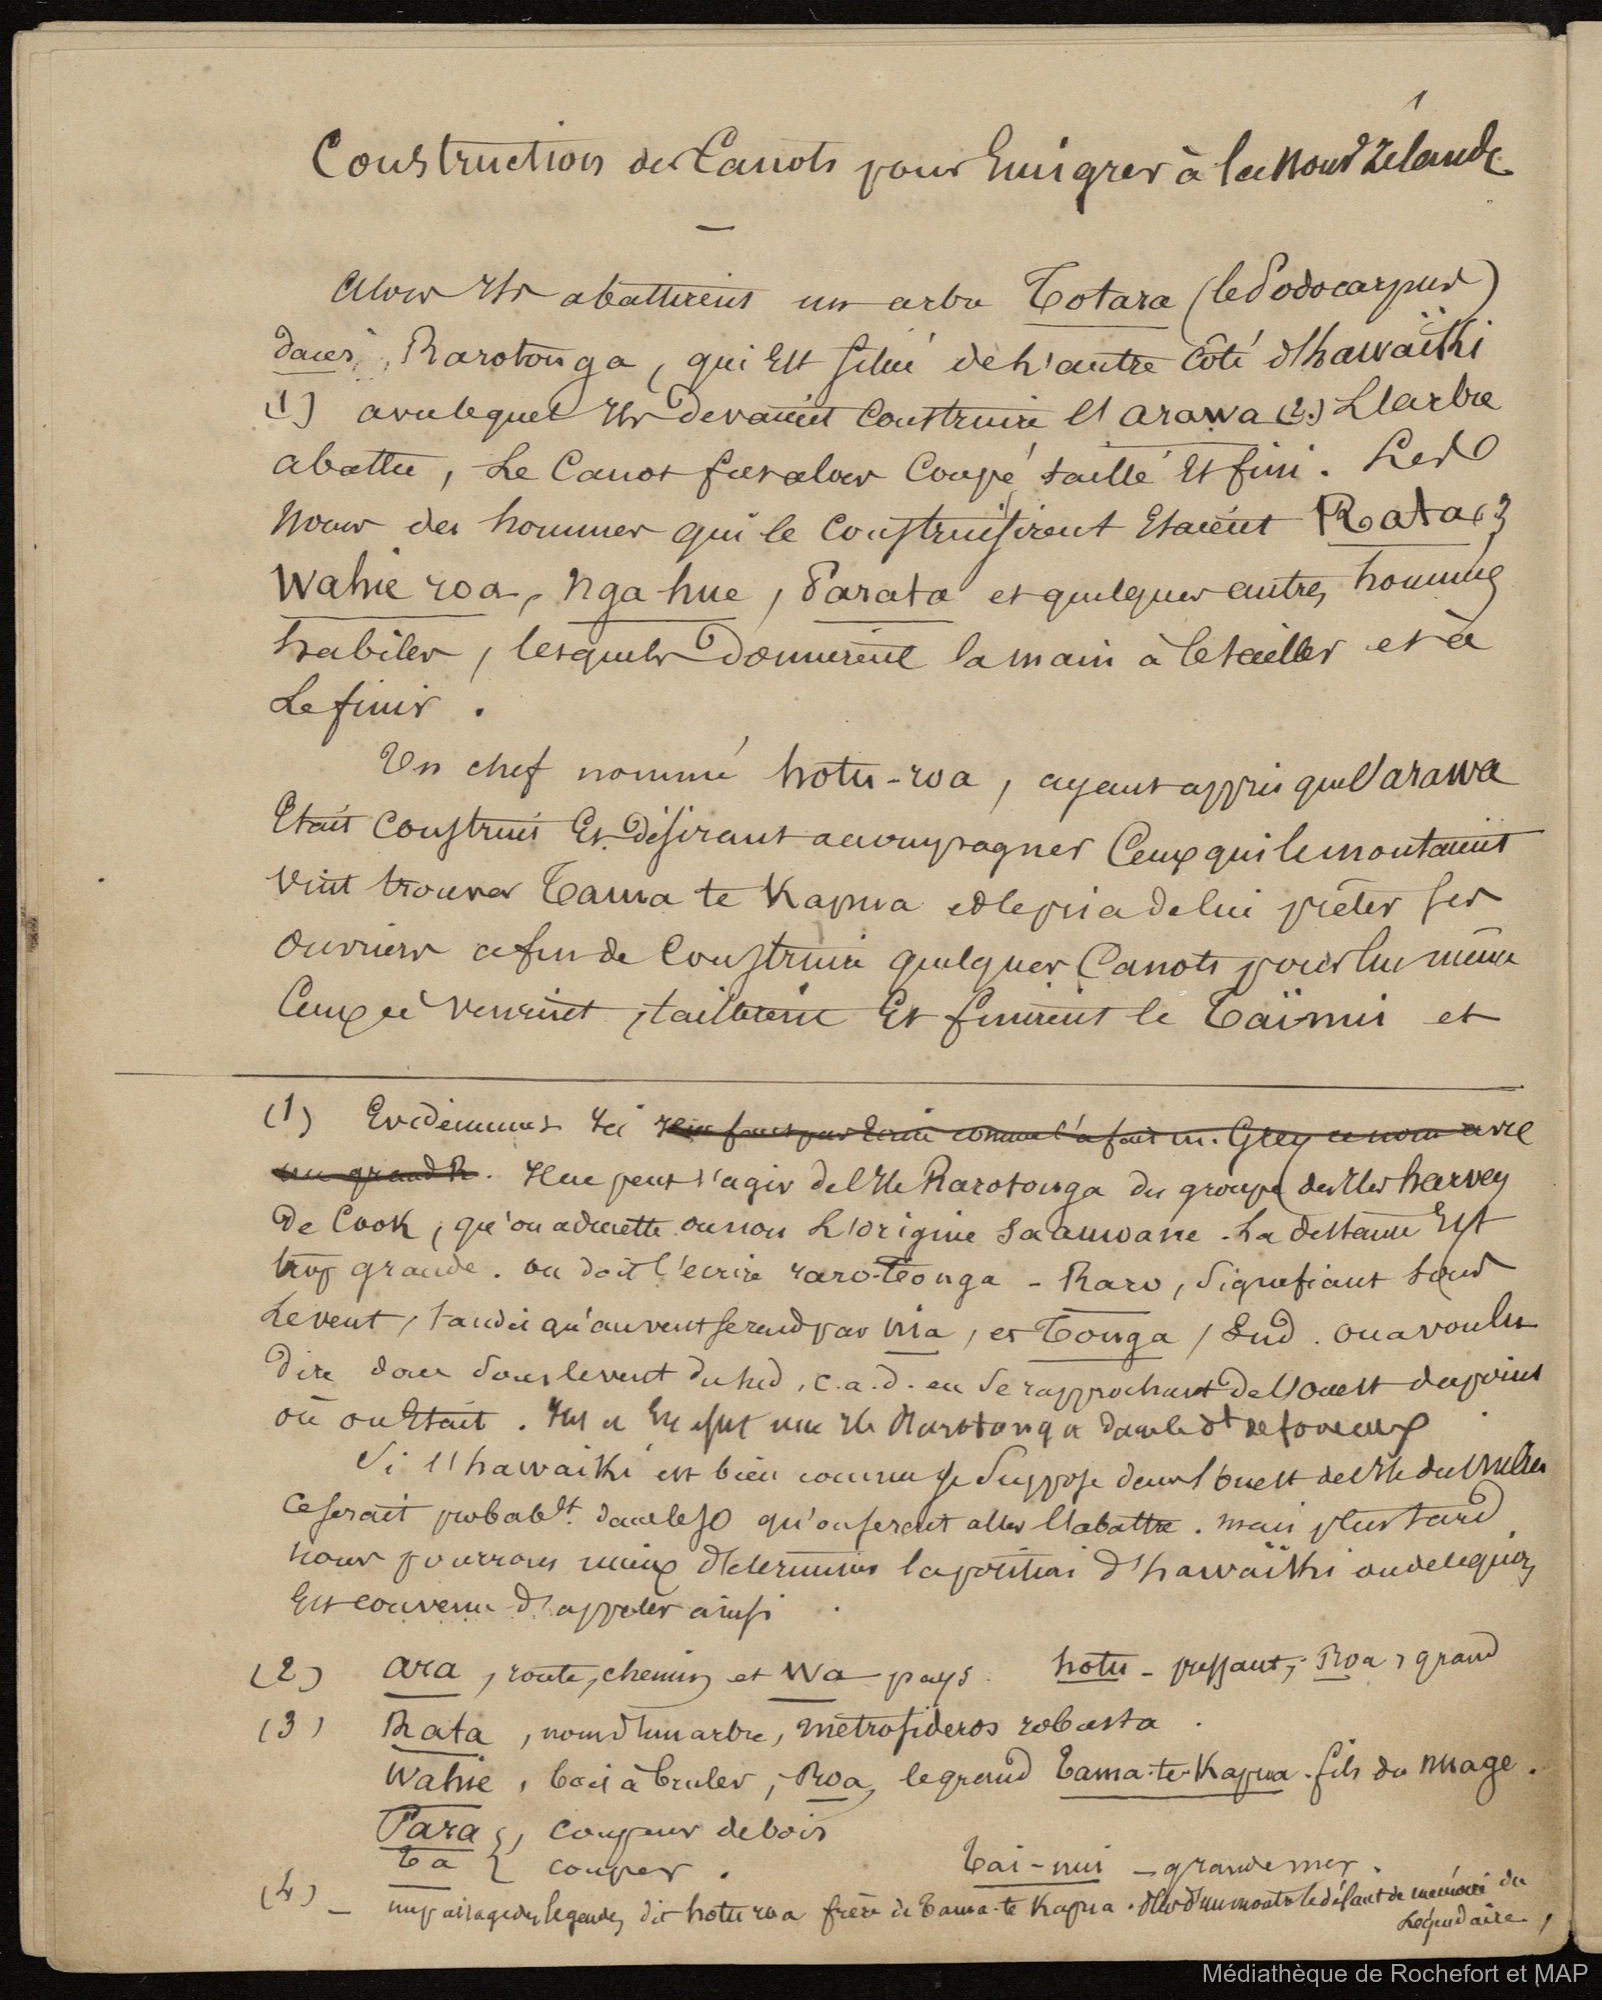 1
Construction des Canots pour Emigrer à la Nouv Zélande
Alors Ils abattirent un arbre Totara (le Podocarpus)
dans Rarotonga, qui Est situé de l'autre Côté d'hawaïki
(1) avec lequel Ils devaient Construire l'arawa (2) L'arbre
abattu, Le Canot fut alors Coupé taillé Et fini. Les
Noms des hommes qui le Construisirent Etaient Rata (3
Wahie roa, Nga hue, Parata et quelques autres hommes
habiles, lesquels donnèrent la main à le tailler et à
Le finir.
Un chef nommé hotu-roa, ayant appris que l'arawa
Etait Construit Et désirant accompagner Ceux qui le montaient
Vint trouver Tama te Kapua et le pria de lui prêter ses
Ouvriers afin de Construire quelques Canots pour lui même
Ceux ci vinrent, taillèrent Et finirent le Taïnui et
(1) Evidemment Ici Il ne faut pas Ecrire comme l'a fait m. Grey ce nom avec
un grand R. Il ne peut s'agir de l'Ile Rarotonga du groupe des Iles harvey
De Cook, qu'on admette ou non L'origine Samoane. La distance Est
trop grande. On doit l'écrire raro-Tonga - Raro, signifiant sous
Le vent, tandis qu'au vent se rend par nia, et Tonga, Sud. On a voulu
Dire donc sous le vent du Sud, c.a.d. en se rapprochant de l'ouest du point
où on Etait. Il y a En effet une Ile Rarotonga dans le dt de foveaux
Si l'hawaiki est bien comme je suppose dans l'ouest de l'Ile du Milieu
Ce serait probablt. dans le SO qu'on serait aller l'abattre. Mais plus tard
nous pourrons mieux déterminer la position d'hawaïki ou de ce qu'on
Est convenu d'appeler ainsi.
(2) Ara, route, chemin et Wa pays. hotu - puissant; Roa, grand
(3) Rata, nom d'un arbre, métrosideros robusta.
Wahie, bois à bruler, Roa, le grand Tama-te-Kapua. fils du nuage.
Para }, Coupeur de bois
Ta } couper. Taï-nui - grande mer.
(4) - un passage des légendes dit hotu roa frère de Tama-te Kapua. démontre le défaut de mémoire du
Légendaire,
Médiathèque de Rochefort et MAP